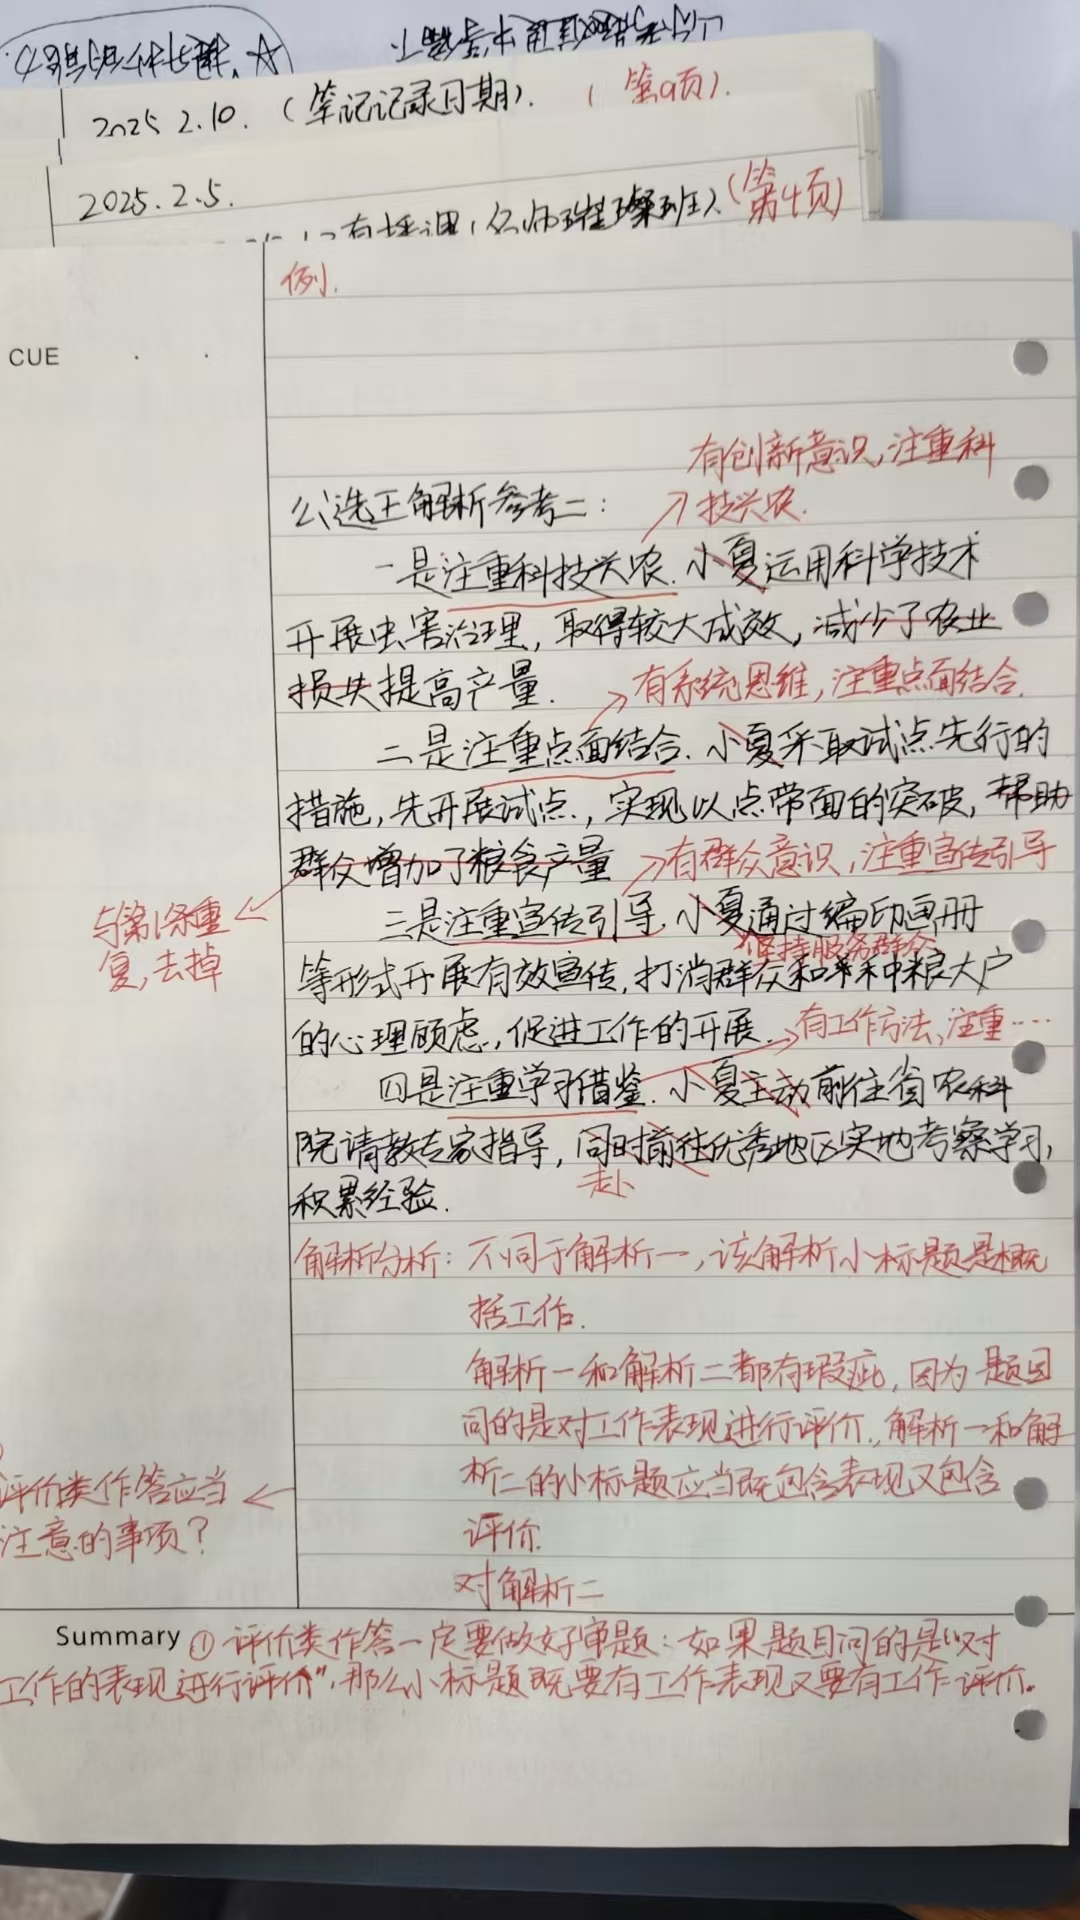 2025 2.10.（笔记记录日期）. （第9页）.
2025.2.5.
（第4页）
例.
CUE
有创新意识，注重科
技兴农.
公选王解析参考二：
一是注重科技兴农.小夏运用科学技术
开展虫害治理，取得较大成效，减少了农业
损失提高产量.
有系统思维，注重点面结合.
二是注重点面结合.小夏采取试点先行的
措施，先开展试点，实现以点带面的突破，帮助
群众增加了粮食产量
有群众意识，注重宣传引导
与第1条重
复，去掉
三是注重宣传引导.小夏通过编印画册
坚持服务群众
等形式开展有效宣传，打消群众和种粮大户
的心理顾虑，促进工作的开展.
有工作方法、注重……
四是注重学习借鉴.小夏主动前往省农科
院请教专家指导，同时前往优秀地区实地考察学习，
赴
积累经验.
解析分析：不同于解析一，该解析小标题是概
括工作.
解析一和解析二都有瑕疵，因为题目
问的是对工作表现进行评价，解析一和解
析二的小标题应当既包含表现又包含
评价.
对解析二
评价类作答应当
注意的事项？
Summary ①评价类作答一定要做好审题：如果题目问的是“对
工作的表现进行评价”，那么小标题既要有工作表现又要有工作评价。